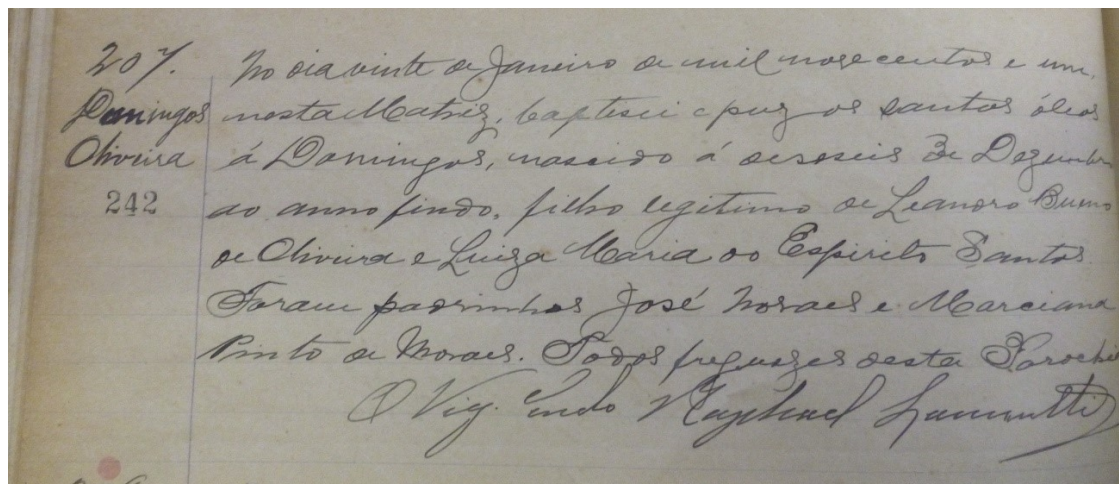 207.
Domingos
Oliveira
242
No dia vinte de Janeiro de mil novecentos e um,
nesta Matriz, baptisei e puz os santos óleos
á Domingos, nascido á deseseis de Dezembro
do anno findo, filho legitimo de Leandro Bueno
de Oliveira e Luiza Maria do Espirito Santos.
Foram padrinhos José Moraes e Marciana
Pinto de Moraes. Todos freguezes desta Parochia
O Vig. Raphael